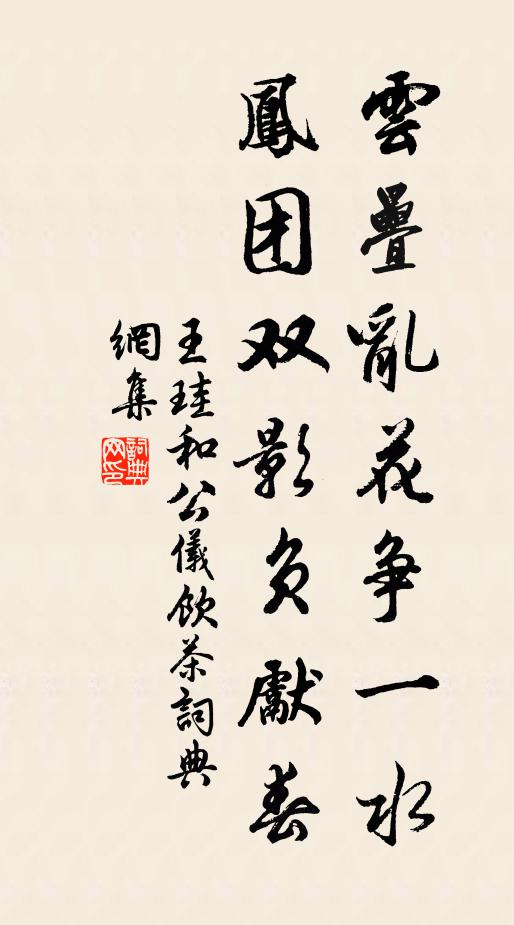 雲疊亂花争一水
鳳团双影负獻春
王珪和公儀飲茶詞典
網集
詞典
网印